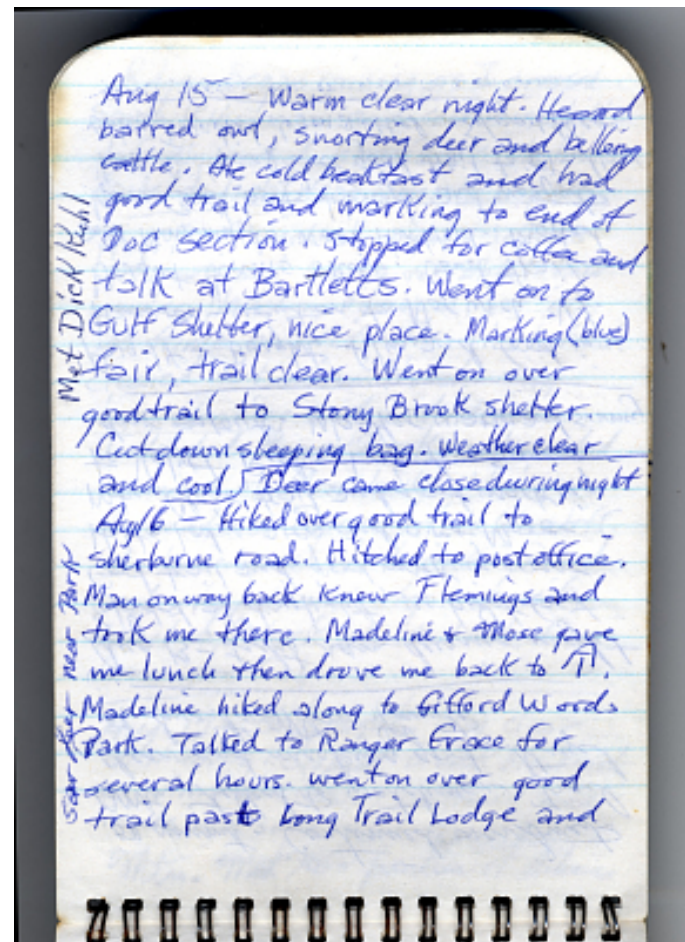 Aug 15 — Warm clear night. Heard
barred owl, snorting deer and bellering
cattle. Ate cold breakfast and had
good trail and marking to end of
DOC section. Stopped for coffee and
talk at Bartletts. Went on to
Gulf Shelter, nice place. Marking (blue)
fair, trail clear. Went on over
good trail to Stony Brook shelter.
Cut down sleeping bag. Weather clear
and cool) Deer came close during night
Aug 16 — Hiked over good trail to
sherburne road. Hitched to post office.
Man on way back knew Flemings and
took me there. Madeline + Mose gave
me lunch then drove me back to AT.
Madeline hiked along to Gifford Woods
Park. Talked to Ranger Grace for
several hours. went on over good
trail past Long Trail Lodge and
Met Dick Ruhl
Saw deer near Park